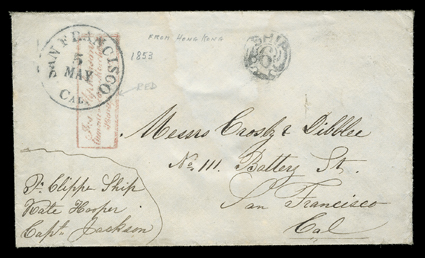 SAN FRANCISCO
5
MAY
CAL.
FROM HONG KONG
1853
RED
SHIP
6
Messrs Crosby & Dibblee
No. 111. Battery St.
San Francisco
Cal
Pr. Clippe Ship
Kate Hooper
Captn Jackson